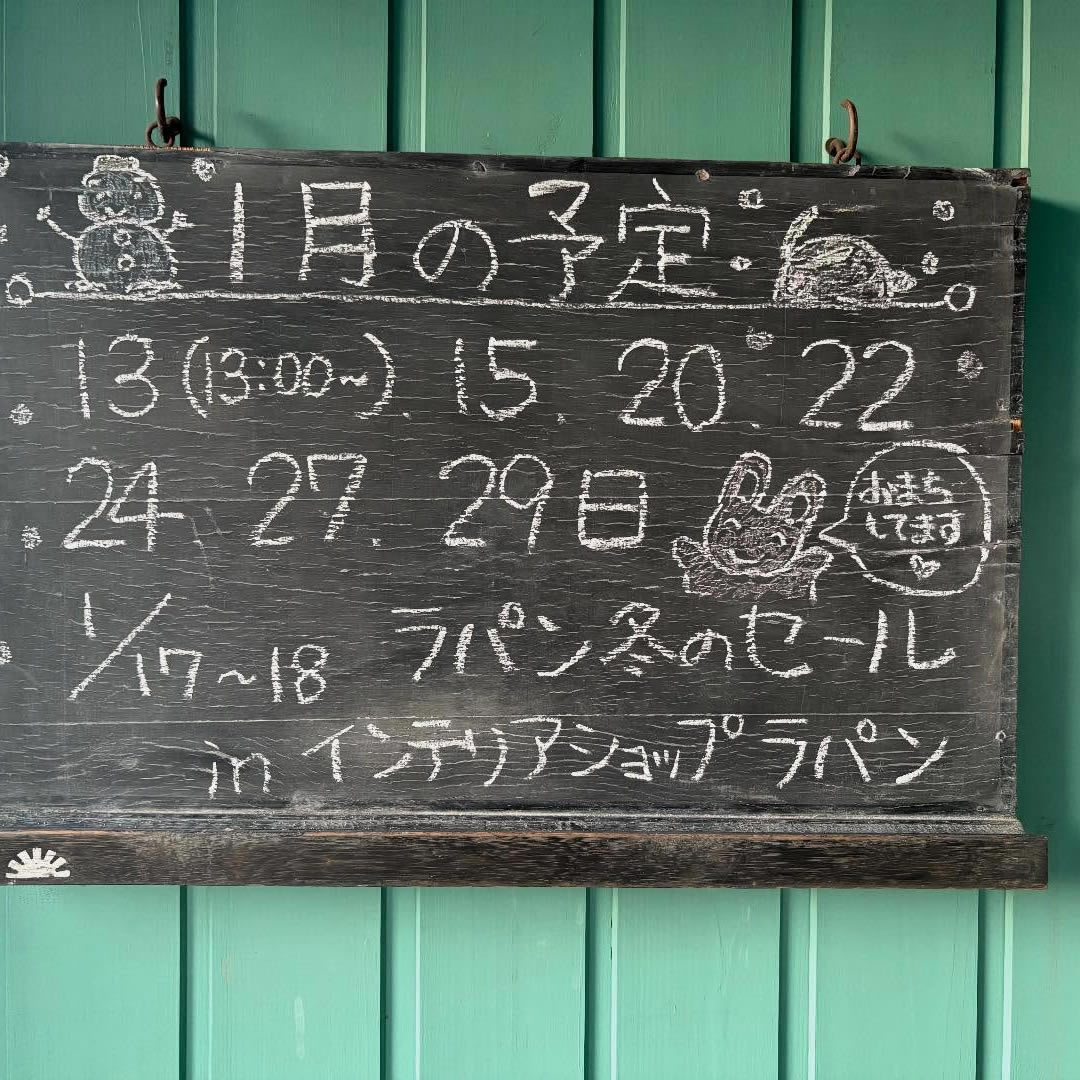 1月の予定
13(13:00~). 15. 20. 22
24. 27. 29日
おまち
してます
1/17~18 ラパン冬のセール
in インテリアショップ ラパン